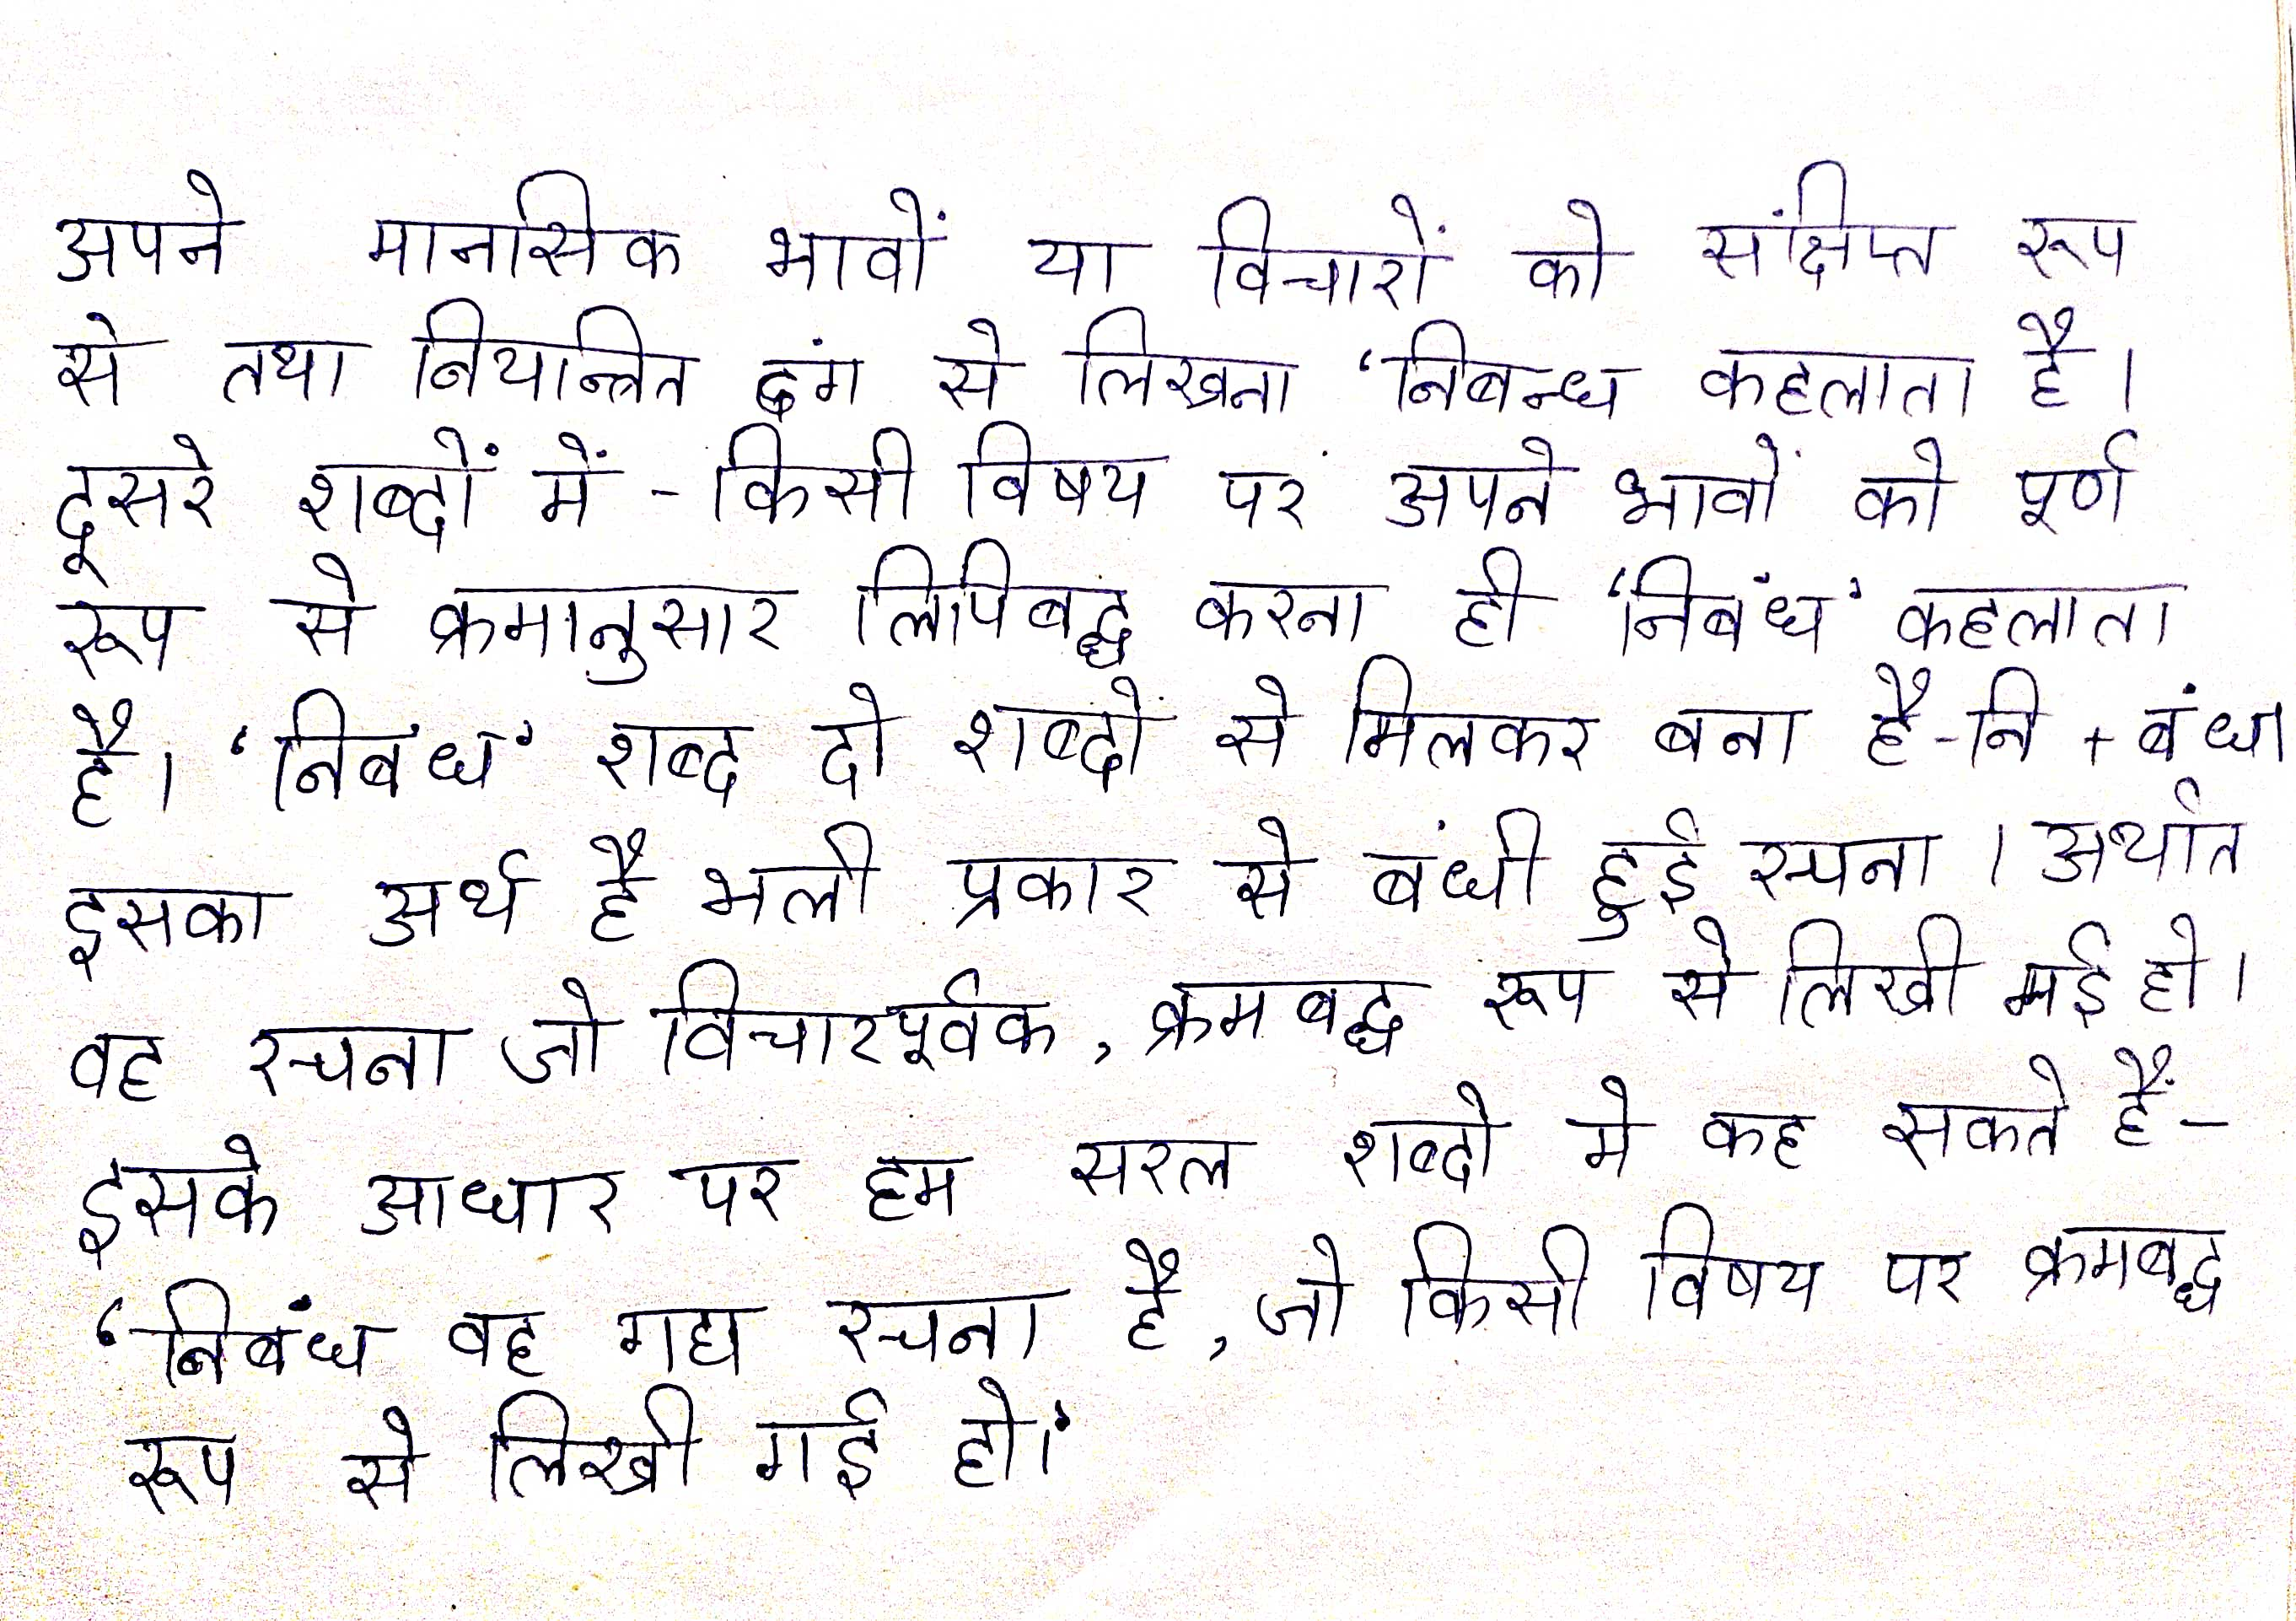 अपने मानसिक भावों या विचारों को संक्षिप्त रूप
से तथा नियन्त्रित ढंग से लिखना ‘निबन्ध कहलाता है।
दूसरे शब्दों में - किसी विषय पर अपने भावों को पूर्ण
रूप से क्रमानुसार लिपिबद्ध करना ही ‘निबंध’ कहलाता
है। ‘निबंध’ शब्द दो शब्दों से मिलकर बना है - नि + बंध।
इसका अर्थ है भली प्रकार से बंधी हुई रचना । अर्थात
वह रचना जो विचारपूर्वक, क्रमबद्ध रूप से लिखी गई हो।
इसके आधार पर हम सरल शब्दो मे कह सकते हैं -
‘निबंध वह गद्य रचना है, जो किसी विषय पर क्रमबद्ध
रूप से लिखी गई हो।’